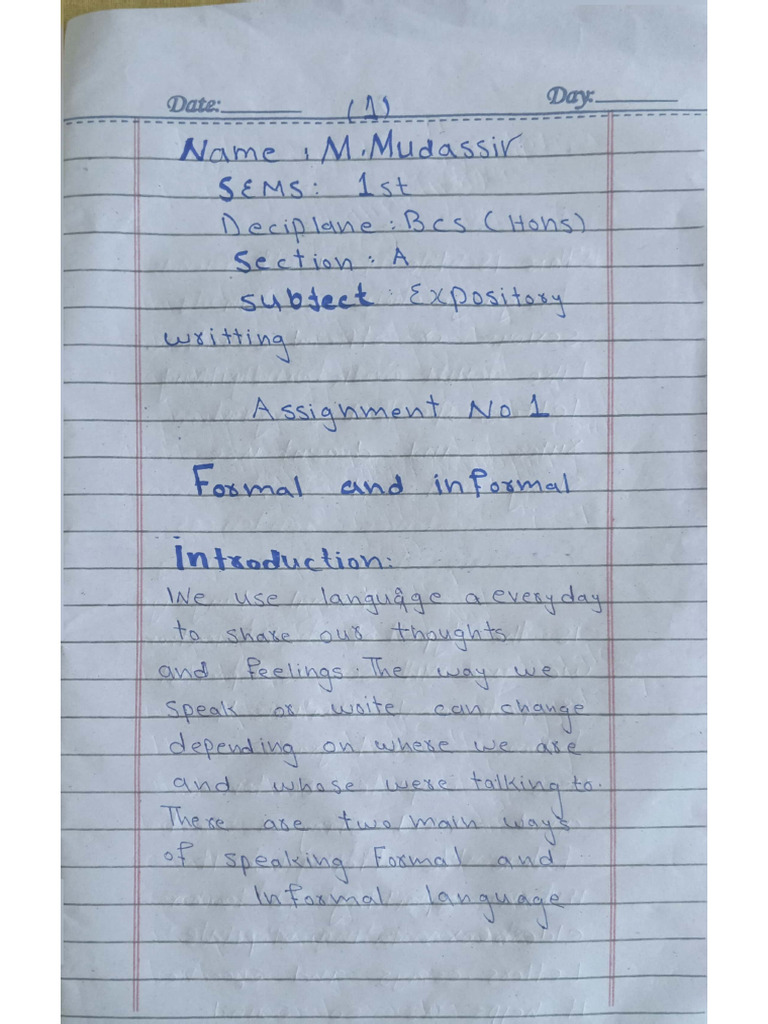 Date:______ (1) Day:______
Name : M.Mudassir
SEMS: 1st
Deciplane : Bcs (Hons)
Section : A
Subject : Expository
writting
Assignment No 1
Formal and informal
introduction:
We use language a everyday
to share our thoughts
and feelings. The way we
speak or woite can change
depending on where we are
and whose were talking to.
There are two main ways
of speaking Formal and
Informal language